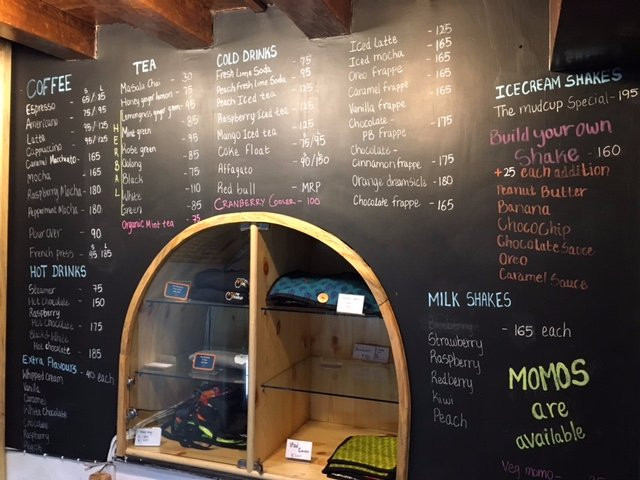 COFFEE
S L
Espresso - 65/85
Americano - 75/95
Latte - 95/125
Cappuccino - 95/125
Caramel Macchiato - 165
Mocha - 165
Raspberry Mocha - 180
Peppermint Mocha - 180
Pour over - 90
S L
French press - 95 185
HOT DRINKS
Steamer - 75
Hot Chocolate - 150
Raspberry
Hot Chocolate - 175
Black & White
Hot chocolate - 185
Extra Flavours - 40 each
Whipped Cream
Vanilla
Caramel
White Chocolate
Chocolate
Raspberry
TEA
HERBAL
Masala Chai - 30
Honey ginger lemon - 75
Lemongrass ginger green - 85
Mint green - 95
Rose green - 85
Oolong - 85
Black - 75
White - 110
Green - 85
Organic Mint tea - 75
COLD DRINKS
Fresh Lime Soda - 75
Peach fresh lime Soda - 95
Peach Iced tea - 125
Raspberry Iced tea - 125
Mango Iced tea - 125
Coke Float - 75/95
Affagato - 90/150
Red bull - MRP
CRANBERRY COOLER - 100
Iced Latte - 125
Iced mocha - 165
Oreo frappe - 165
Caramel frappe - 165
Vanilla frappe - 165
Chocolate -
PB frappe - 175
Chocolate -
Cinnamon frappe - 175
Orange dreamsicle - 180
Chocolate frappe - 165
ICECREAM SHAKES
The mudcup Special - 195
Build your own
Shake - 160
+25 each addition
Peanut Butter
Banana
ChocoChip
Chocolate Sauce
Oreo
Caramel Sauce
MILK SHAKES
- 165 each
Strawberry
Raspberry
Redberry
Kiwi
Peach
MOMOS
are
available
Veg momo -